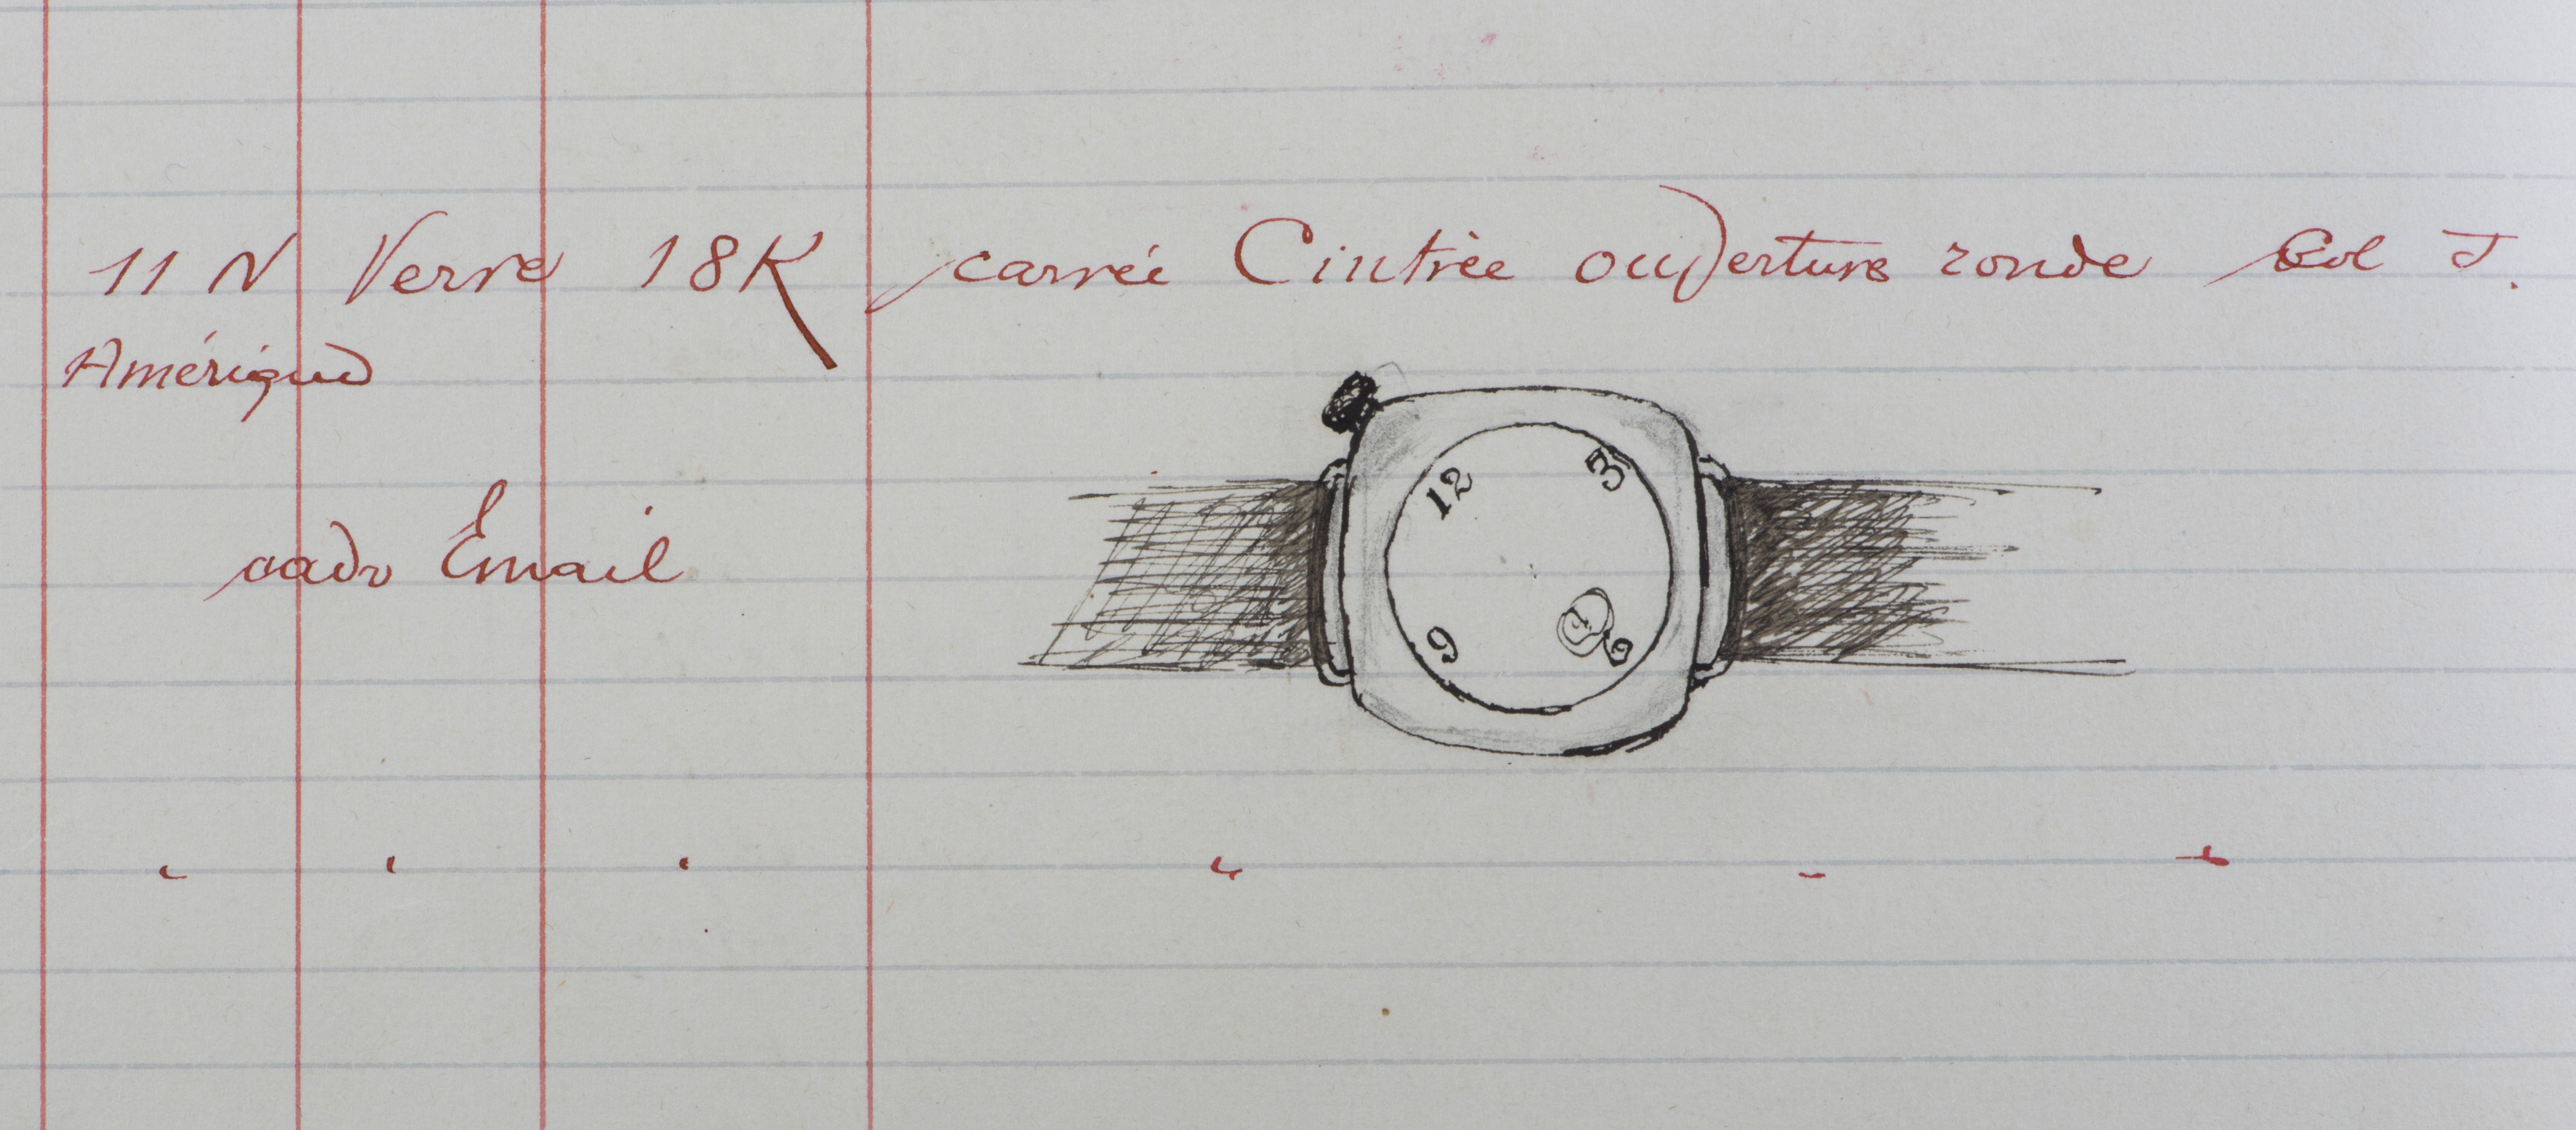 11 N Verre 18K carrée Cintrée ouverture ronde Col J.
Amérique
cadr Email
12 3
9 6